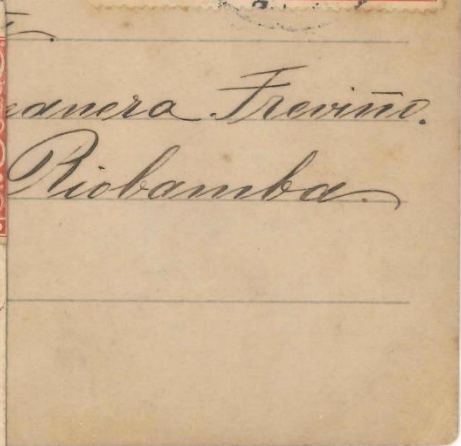 eanera Treviño.
Riobamba.